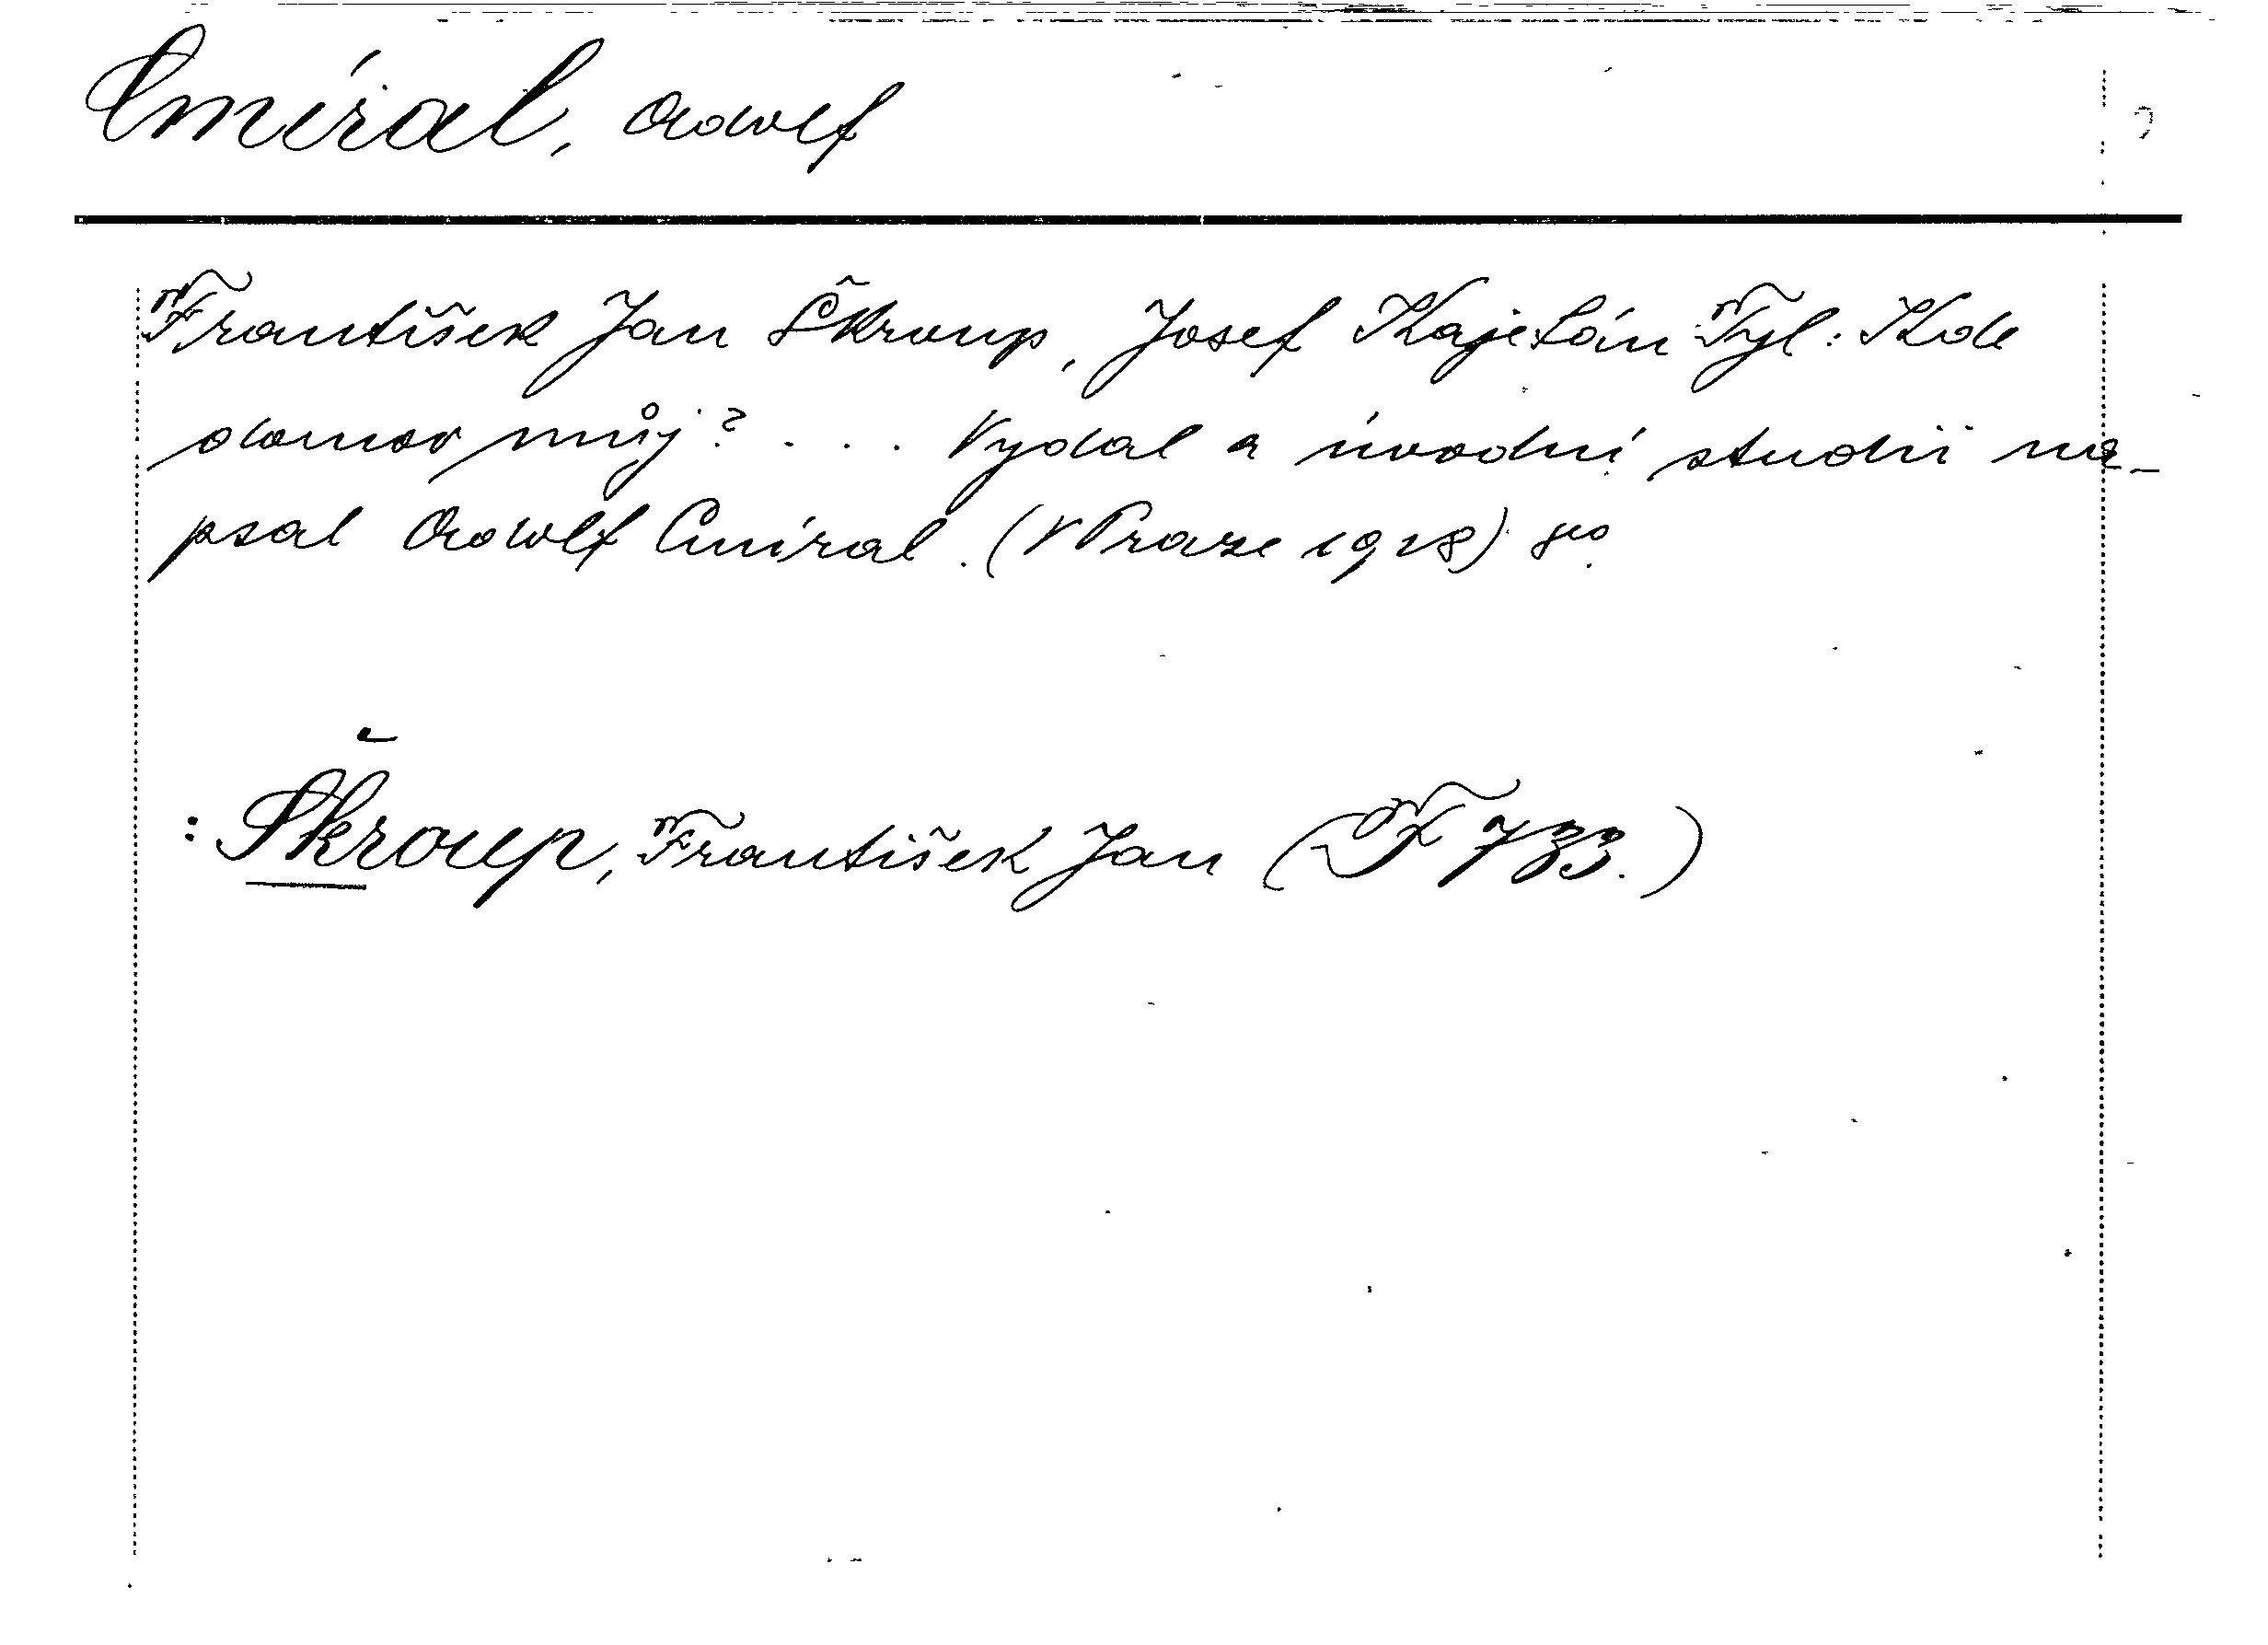 Cmíral, Adolf
František Jan Škroup, Josef Kajetán Tyl: Kde
domov můj? ... Vydal a úvodní studii na-
psal Adolf Cmíral. (V Praze 1918) 8º.
: Škroup, František Jan (F 733.)